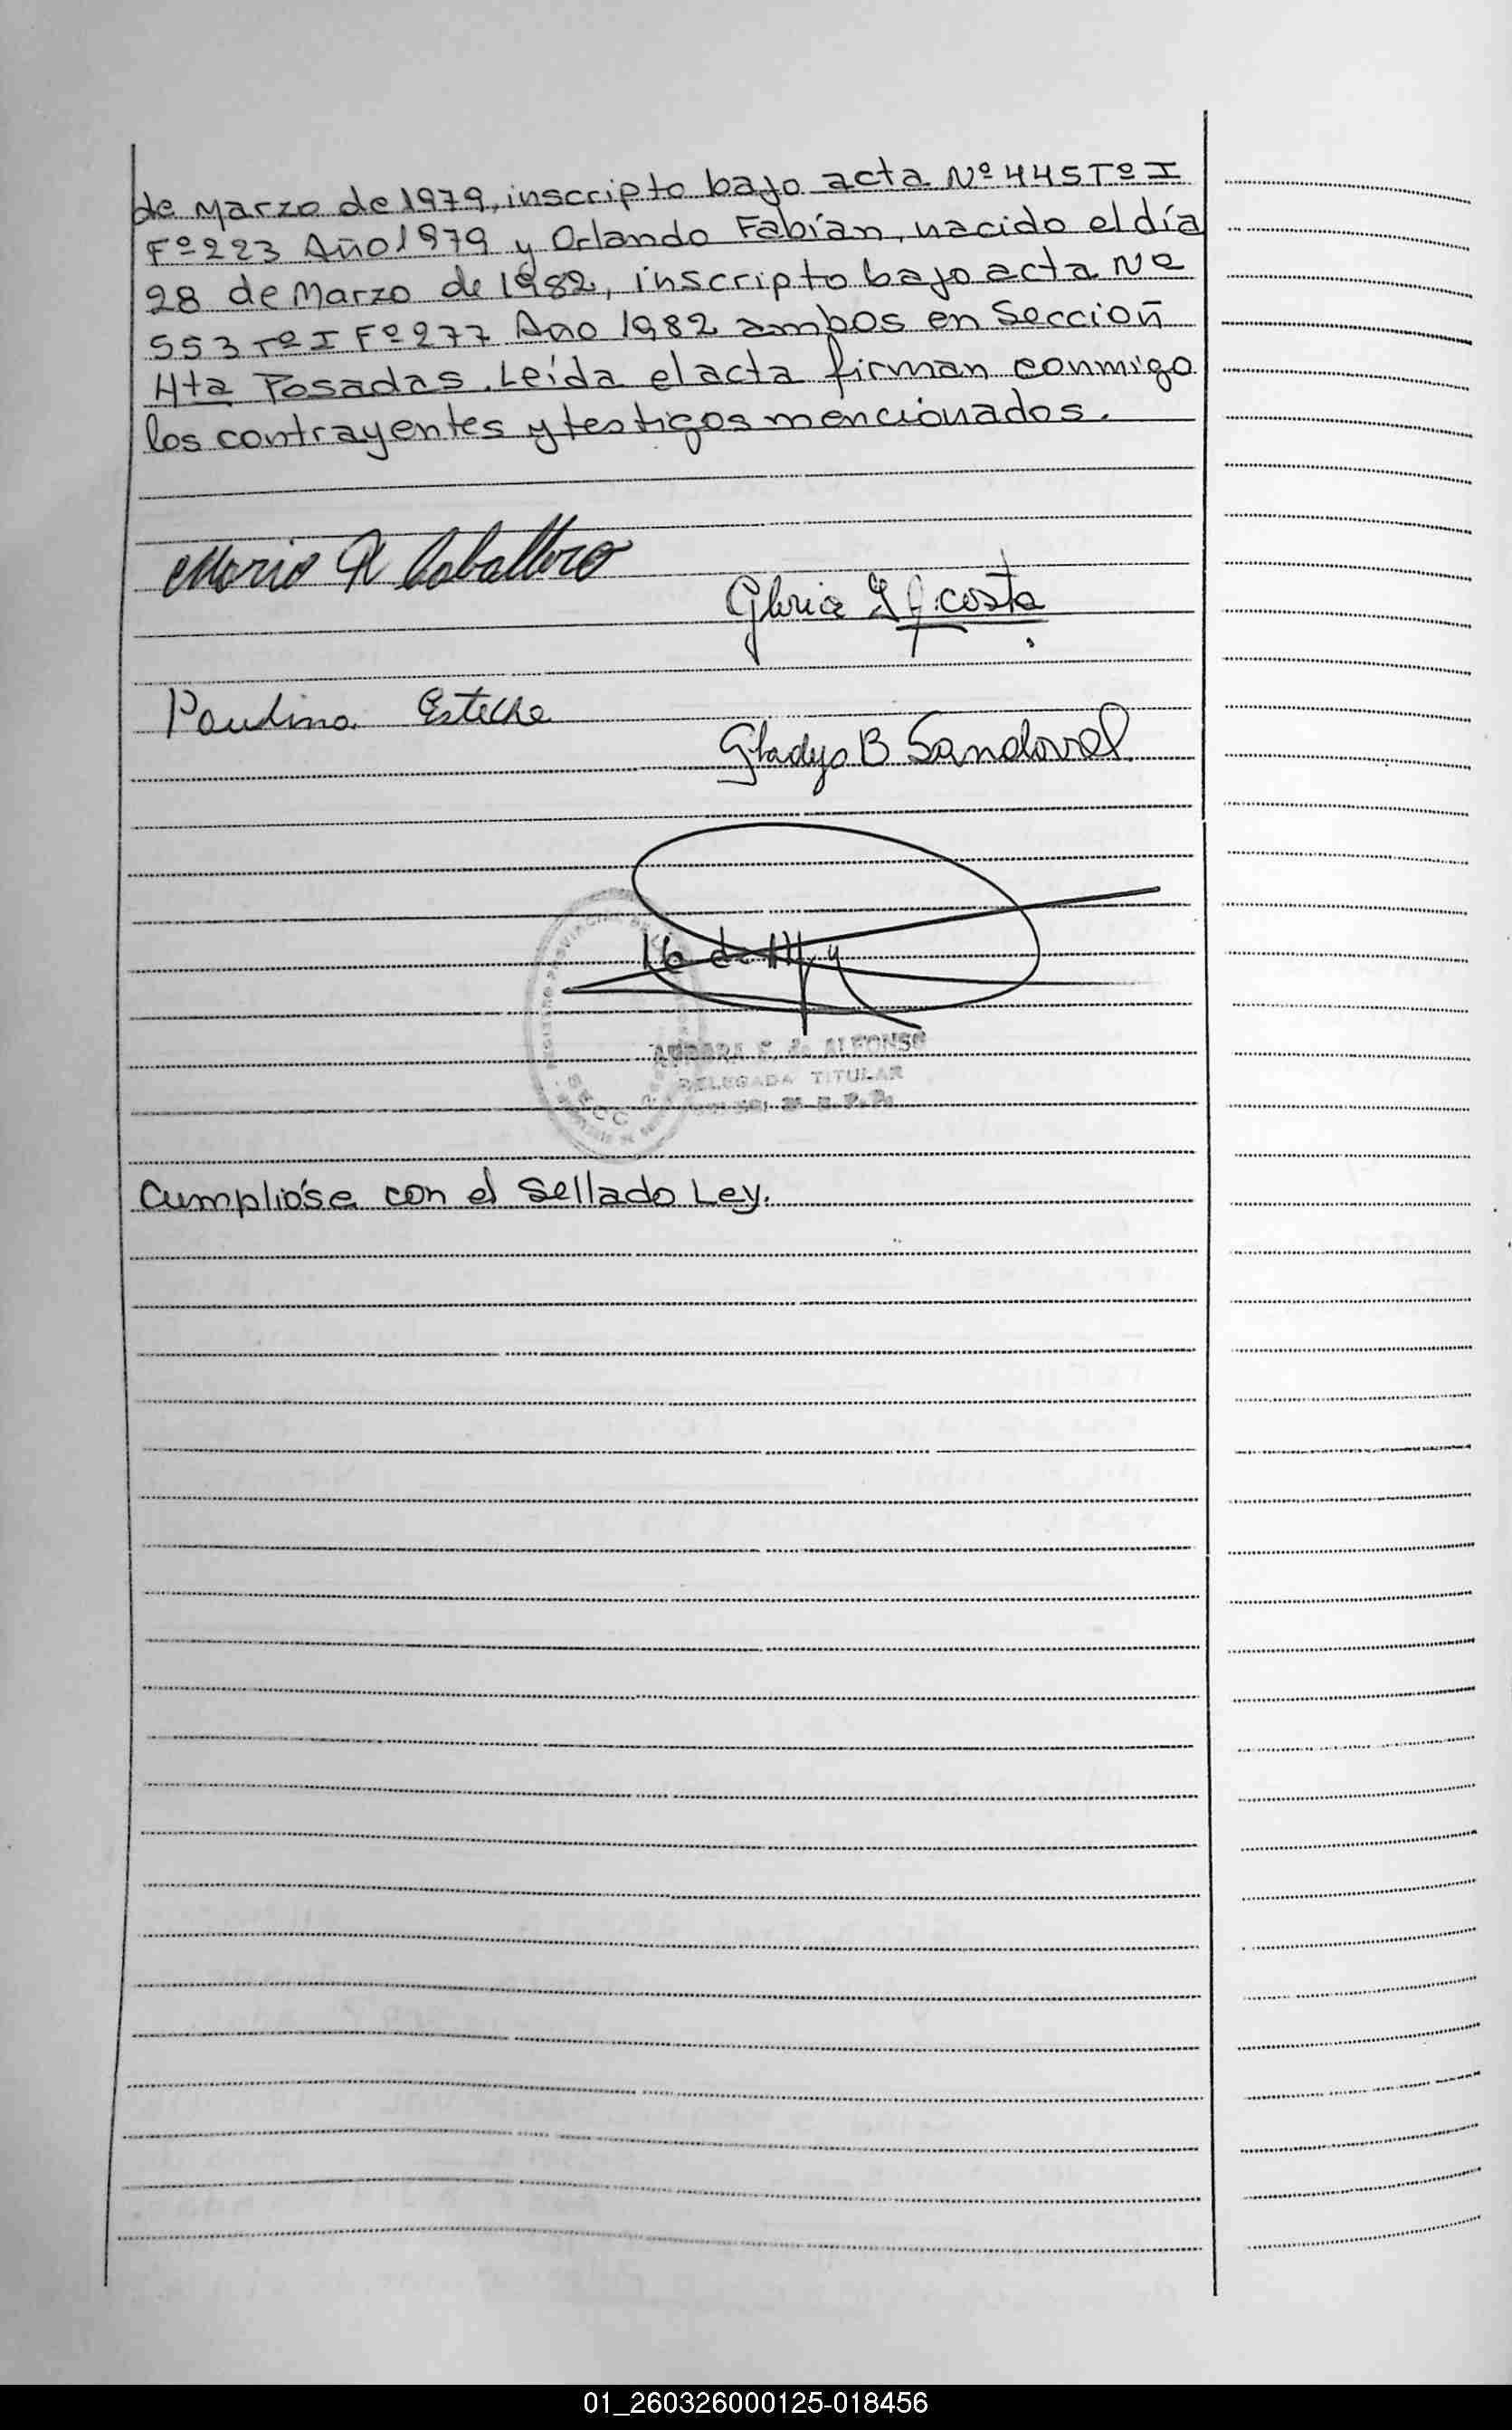 de Marzo de 1979, inscripto bajo acta Nº 445 Tº I
Fº 223 Año 1979 y Orlando Fabián, nacido el día
28 de Marzo de 1982, inscripto bajo acta Nº
553 Tº I Fº 277 Año 1982 ambos en Sección
4ta Posadas. Leída el acta firman conmigo
los contrayentes y testigos mencionados.
Mario R Caballero
Gloria Acosta
Paulina Esteche
Gladys B Sandoval
de ALFONSO
DELEGADA TITULAR
Cumplióse con el Sellado Ley.
01_260326000125-018456